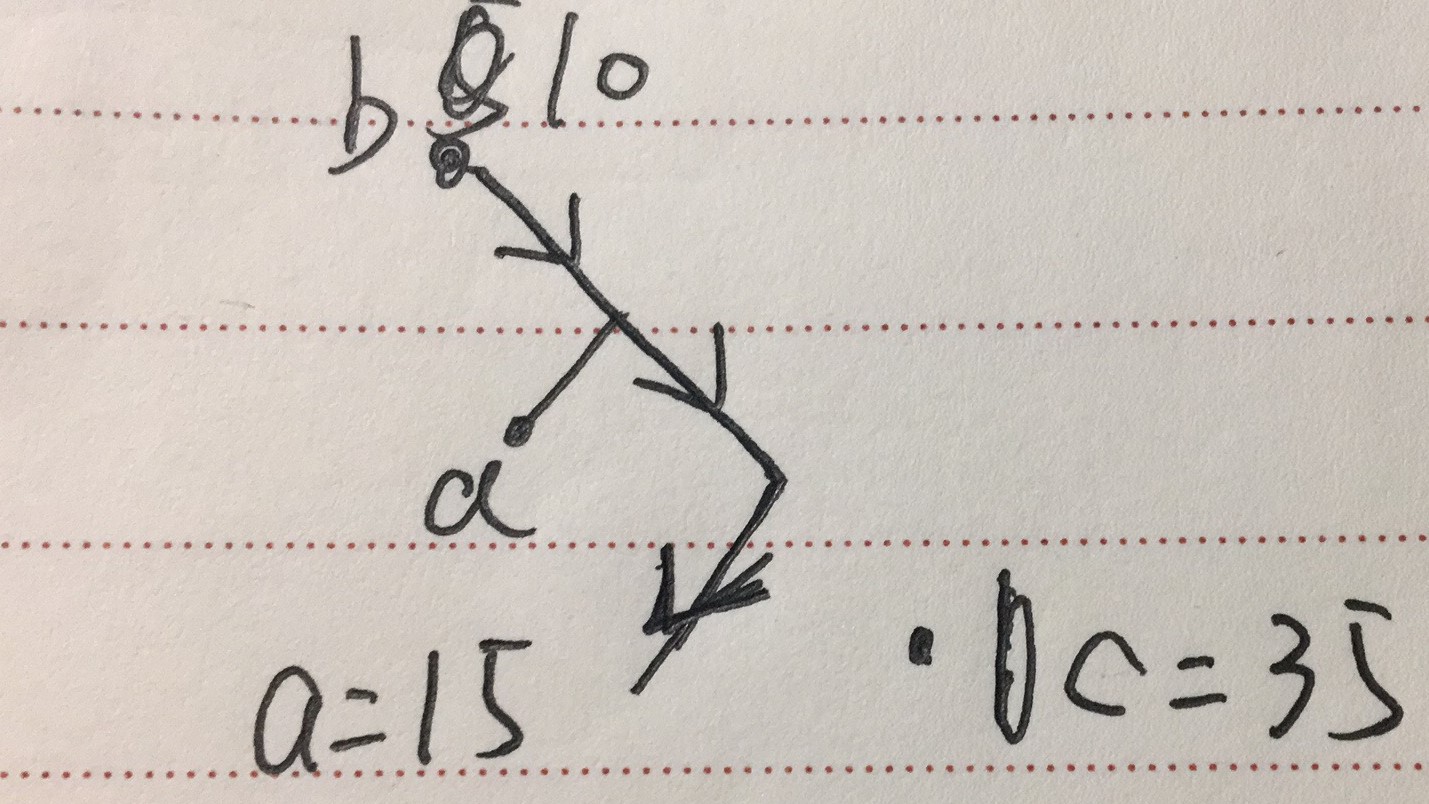 b 10
a
a=15
c=35